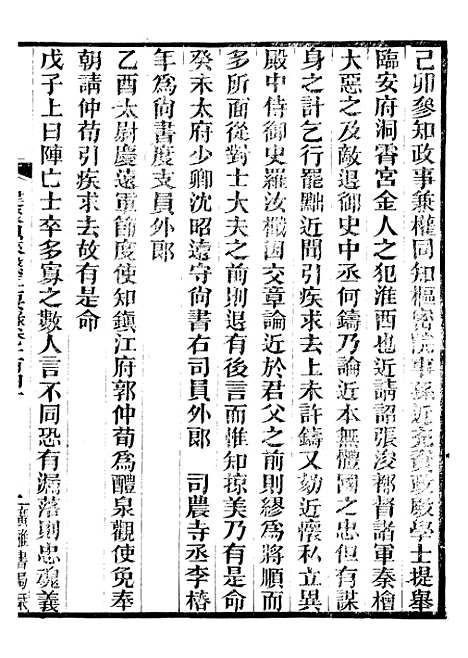 己卯參知政事兼權同知樞密院事孫近充資政殿學士提舉
臨安府洞霄宮金人之犯淮西也近請詔張浚都督諸軍秦檜
大惡之及敵退御史中丞何鑄乃論近本無體國之忠但有謀
身之計乞行罷黜近聞引疾求去上未許鑄又劾近懷私立異
殿中侍御史羅汝楫因交章論近於君父之前則繆為將順而
多所面從對士大夫之前則退有後言而雖知掠美乃有是命
癸未太府少卿沈昭遠守尚書右司員外郎　司農寺丞李椿
年為尚書度支員外郎
乙酉太尉慶遠軍節度使知鎮江府郭仲荀為醴泉觀使免奉
朝請仲荀引疾求去故有是命
戊子上曰陣亡士卒多寡之數人言不同恐有漏落則忠魂義
卷一百四十
廣雅書局栞